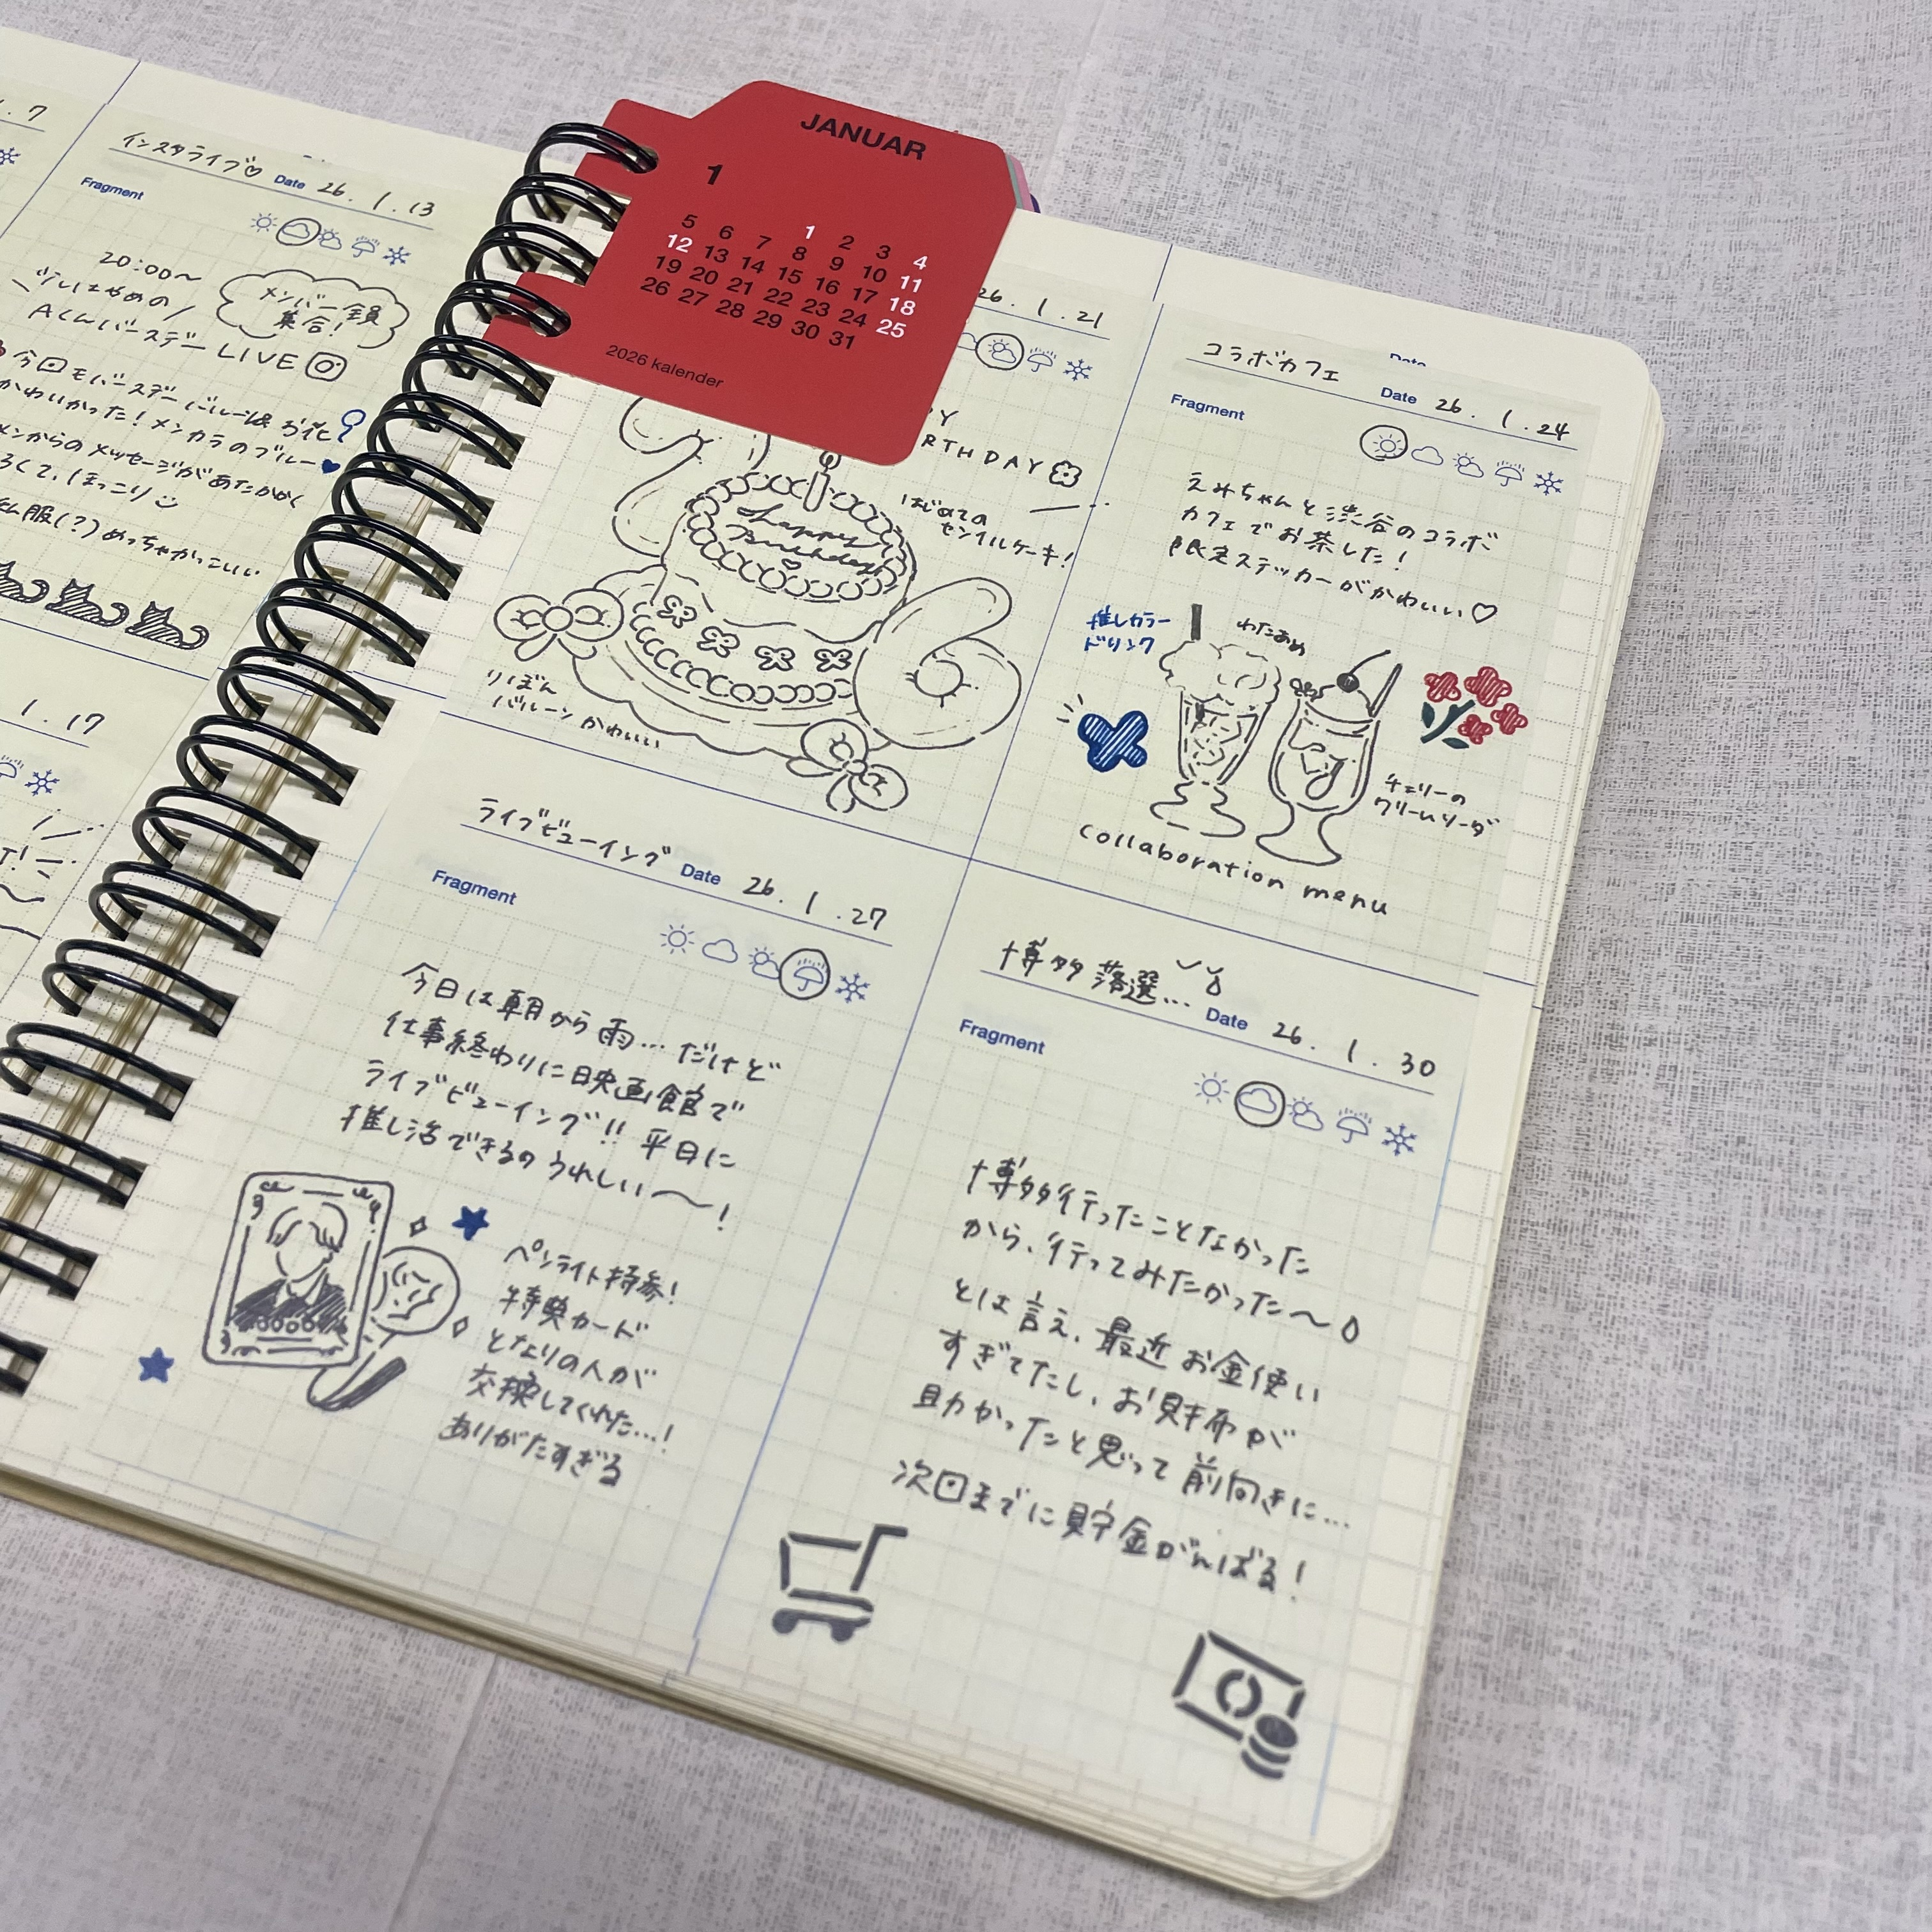 .7
インスタライブ♡
Date 26. 1. 13
Fragment
20:00〜
メンバー全員
集合!
Aくんバースデー LIVE
今回もバースデーバルーン&お花
かわいかった!メンカラのブルー
メンからのメッセージがあたたかく
て、ほっこり
私服(?)めっちゃかっこいい
1. 17
JANUAR
1
1 2 3 4
5 6 7 8 9 10 11
12 13 14 15 16 17 18
19 20 21 22 23 24 25
26 27 28 29 30 31
2026 kalender
26. 1. 21
Y
RTHDAY
はじめての
センイルケーキ!
Happy
Birthday!
りぼん
バルーンかわいい
コラボカフェ
Date 26. 1. 24
Fragment
えみちゃんと渋谷のコラボ
カフェでお茶した!
限定ステッカーがかわいい♡
推しカラー
ドリンク
わたあめ
チェリーの
クリームソーダ
collaboration menu
ライブビューイング
Date 26. 1. 27
Fragment
今日は朝から雨…だけど
仕事終わりに映画館で
ライブビューイング!! 平日に
推し活できるのうれしい〜!
ペンライト持参!
特典カード
となりの人が
交換してくれた…!
ありがたすぎる
博多落選…
Date 26. 1. 30
Fragment
博多行ったことなかった
から、行ってみたかった〜
とは言え、最近お金使い
すぎてたし、お財布が
助かったと思って前向きに…
次回までに貯金がんばる!